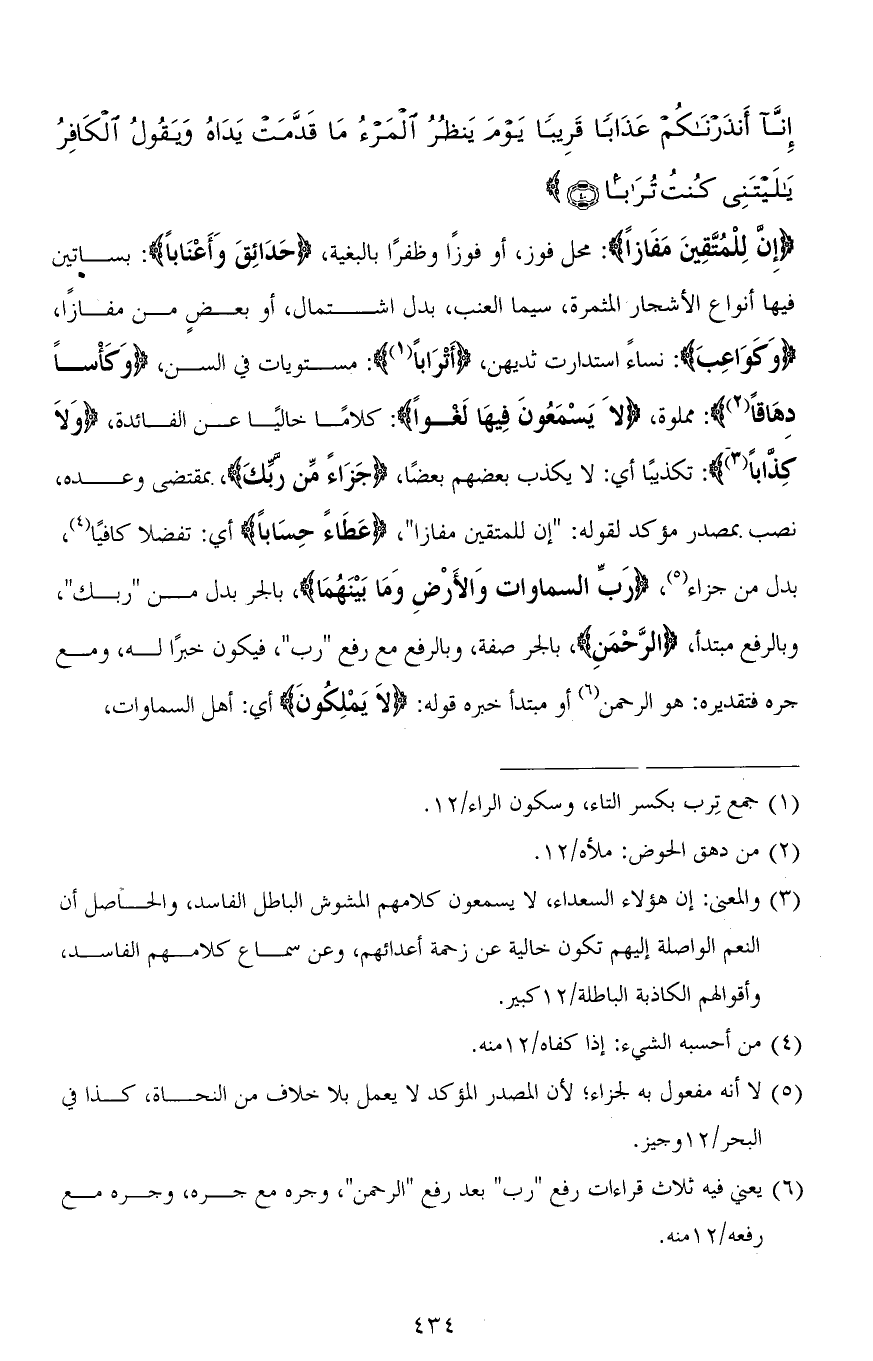 إِنَّآ أَنذَرْنَٰكُمْ عَذَابًا قَرِيبًا يَوْمَ يَنظُرُ ٱلْمَرْءُ مَا قَدَّمَتْ يَدَاهُ وَيَقُولُ ٱلْكَافِرُ
يَٰلَيْتَنِى كُنتُ تُرَٰبًۢا ۝٤٠﴾
﴿إِنَّ لِلْمُتَّقِينَ مَفَازاً﴾: محل فوز، أو فوزًا وظفرًا بالبغية، ﴿حَدَائِقَ وَأَعْنَاباً﴾: بساتين
فيها أنواع الأشجار المثمرة، سيما العنب، بدل اشتمال، أو بعضٍ من مفازًا،
﴿وَكَوَاعِبَ﴾: نساءً استدارت ثديهن، ﴿أَتْرَاباً(١)﴾: مستويات في السن، ﴿وَكَأْساً
دِهَاقاً(٢)﴾: مملوة، ﴿لاَ يَسْمَعُونَ فِيهَا لَغْواً﴾: كلامًا خاليًا عن الفائدة، ﴿وَلاَ
كِذَّاباً(٣)﴾: تكذيبًا أي: لا يكذب بعضهم بعضًا، ﴿جَزَاءً مِّن رَّبِّكَ﴾، بمقتضى وعده،
نصب بمصدر مؤكد لقوله: "إن للمتقين مفازا"، ﴿عَطَاءً حِسَاباً﴾ أي: تفضلا كافيًا(٤)،
بدل من جزاء(٥)، ﴿رَبِّ السماوات وَالأَرْضِ وَمَا بَيْنَهُمَا﴾، بالجر بدل من "ربك"،
وبالرفع مبتدأ، ﴿الرَّحْمَنِ﴾، بالجر صفة، وبالرفع مع رفع "رب"، فيكون خبرًا له، ومع
جره فتقديره: هو الرحمن(٦) أو مبتدأ خبره قوله: ﴿لاَ يَمْلِكُونَ﴾ أي: أهل السماوات،
(١) جمع تِرب بكسر التاء، وسكون الراء/١٢.
(٢) من دهق الحوض: ملأه/١٢.
(٣) والمعنى: إن هؤلاء السعداء، لا يسمعون كلامهم المشوش الباطل الفاسد، والحاصل أن
النعم الواصلة إليهم تكون خالية عن زحمة أعدائهم، وعن سماع كلامهم الفاسد،
وأقوالهم الكاذبة الباطلة/١٢كبير.
(٤) من أحسبه الشيء: إذا كفاه/١٢منه.
(٥) لا أنه مفعول به لجزاء؛ لأن المصدر المؤكد لا يعمل بلا خلاف من النحاة، كذا في
البحر/١٢وجيز.
(٦) يعني فيه ثلاث قراءات رفع "رب" بعد رفع "الرحمن"، وجره مع جره، وجره مع
رفعه/١٢منه.
٤٣٤